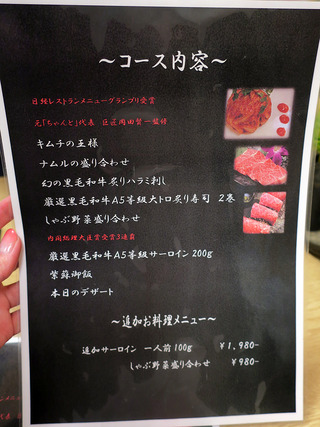 ～コース内容～
日経レストランメニューグランプリ受賞
元「ちゃんと」代表 巨匠岡田賢一監修
キムチの王様
ナムルの盛り合わせ
幻の黒毛和牛炙りハラミ刺し
厳選黒毛和牛A5等級大トロ炙り寿司 2巻
しゃぶ野菜盛り合わせ
内閣総理大臣賞受賞3連覇
厳選黒毛和牛A5等級サーロイン200g
紫蘇御飯
本日のデザート
～追加お料理メニュー～
追加サーロイン 一人前100g ￥1,980-
しゃぶ野菜盛り合わせ ￥980-